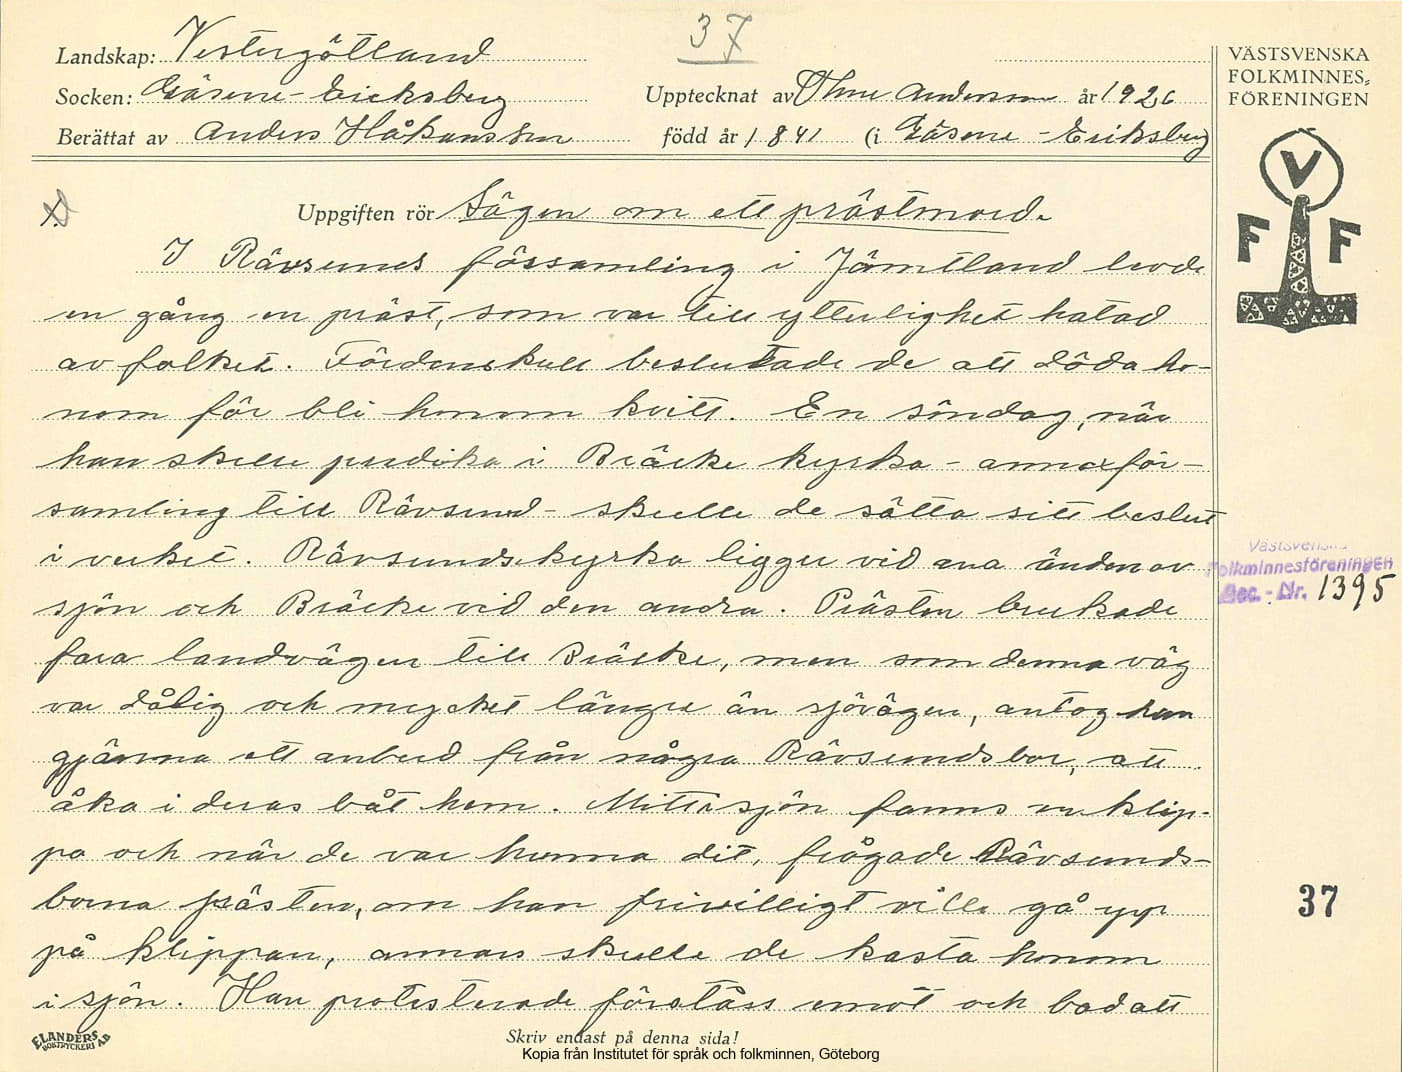 37
Landskap: Vestergötland
Socken: Gäsene-Ericksberg
Upptecknat av Thure Andersson år 1926
Berättat av Anders Håkansson född år 1841 (i Gäsene-Eriksberg
VÄSTSVENSKA
FOLKMINNES-
FÖRENINGEN
V
F F
Uppgiften rör Sägen om ett prästmord.
I Rävsunds församling i Jämtland levde
en gång en präst, som var till ytterlighet hatad
av folket. Fördenskull beslutade de att döda ho-
nom för bli honom kvitt. En söndag, när
han skulle predika i Bräcke kyrka - annexför-
samling till Rävsund - skulle de sätta sitt beslut
i verket. Rävsundskyrka ligger vid ena änden av
sjön och Bräcke vid den andra. Prästen brukade
fara landvägen till Bräcke, men som denna väg
var dålig och mycket längre än sjövägen, antog han
gjärna ett anbud från några Rävsundsbor, att
åka i deras båt hem. Mitt i sjön fanns en klip-
pa och när de var hunna dit, frågade Rävsunds-
borna prästen, om han frivilligt ville gå upp
på klippan, annars skulle de kasta honom
i sjön. Han protesterade förståss emot och bad att
Västsvenska
Folkminnesföreningen
Acc. - Nr. 1395
37
ELANDERS
BOKTRYCKERI A.B
Skriv endast på denna sida!
Kopia från Institutet för språk och folkminnen, Göteborg